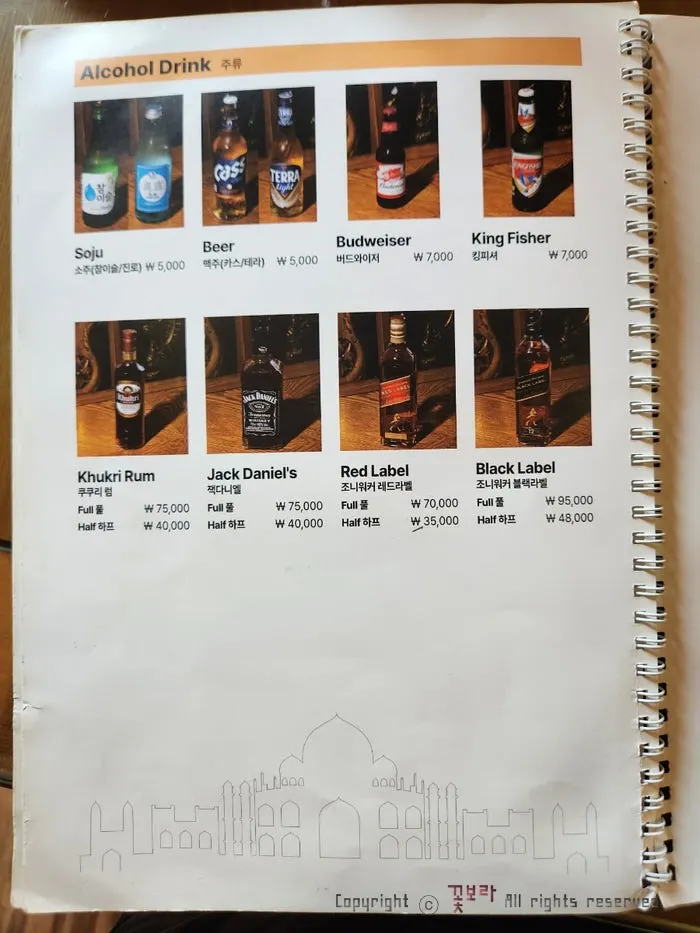 Alcohol Drink 주류
참이슬
Cass
TERRA
Light
Budweiser
KINGFISHER
Soju
소주(참이슬/진로) ₩ 5,000
Beer
맥주(카스/테라) ₩ 5,000
Budweiser
버드와이저 ₩ 7,000
King Fisher
킹피셔 ₩ 7,000
Khukri
JACK DANIEL'S
RED LABEL
BLACK LABEL
Khukri Rum
쿠쿠리 럼
Full 풀 ₩ 75,000
Half 하프 ₩ 40,000
Jack Daniel's
잭다니엘
Full 풀 ₩ 75,000
Half 하프 ₩ 40,000
Red Label
조니워커 레드라벨
Full 풀 ₩ 70,000
Half 하프 ₩ 35,000
Black Label
조니워커 블랙라벨
Full 풀 ₩ 95,000
Half 하프 ₩ 48,000
Copyright ⓒ 꽃보라 All rights reserved